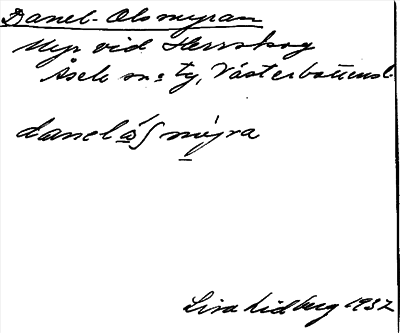 Danel-Olsmyran
Myr vid Herrskog
Åsele sn o ty, Västerbottensl.
danel ås myra
Lisa Lidberg 1932